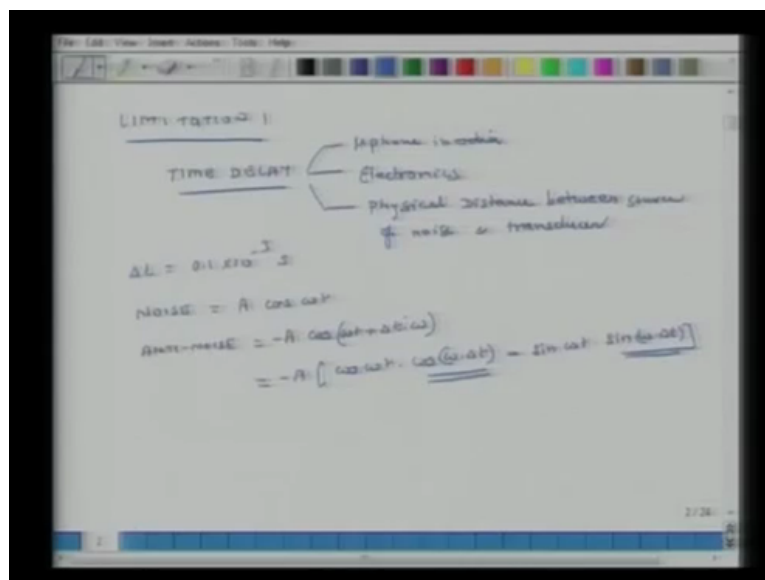 File Edit View Insert Actions Tools Help
LIMITATION 1
TIME DELAY
μphone inertia
Electronics
Physical Distance between source
of noise & transducer
Δt = 0.1 × 10⁻³ s
NOISE = A cos ωt
ANTI-NOISE = -A cos(ωt + Δt·ω)
= -A [cos ωt · cos(ω·Δt) - sin ωt sin(ω·Δt)]
2/26